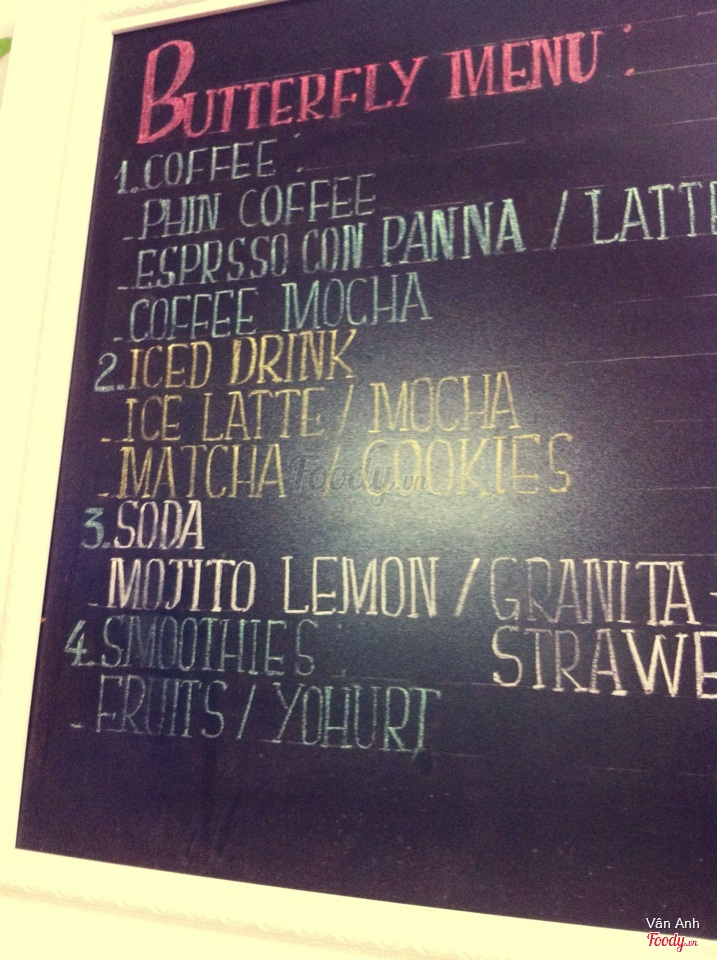 BUTTERFLY MENU :
1. COFFEE :
- PHIN COFFEE
- ESPRSSO CON PANNA / LATTE
- COFFEE MOCHA
2. ICED DRINK
- ICE LATTE / MOCHA
- MATCHA / COOKIES
Foody.vn
3. SODA
- MOJITO LEMON / GRANITA -
STRAWE
4. SMOOTHIES :
- FRUITS / YOHURT
Vân Anh
Foody.vn